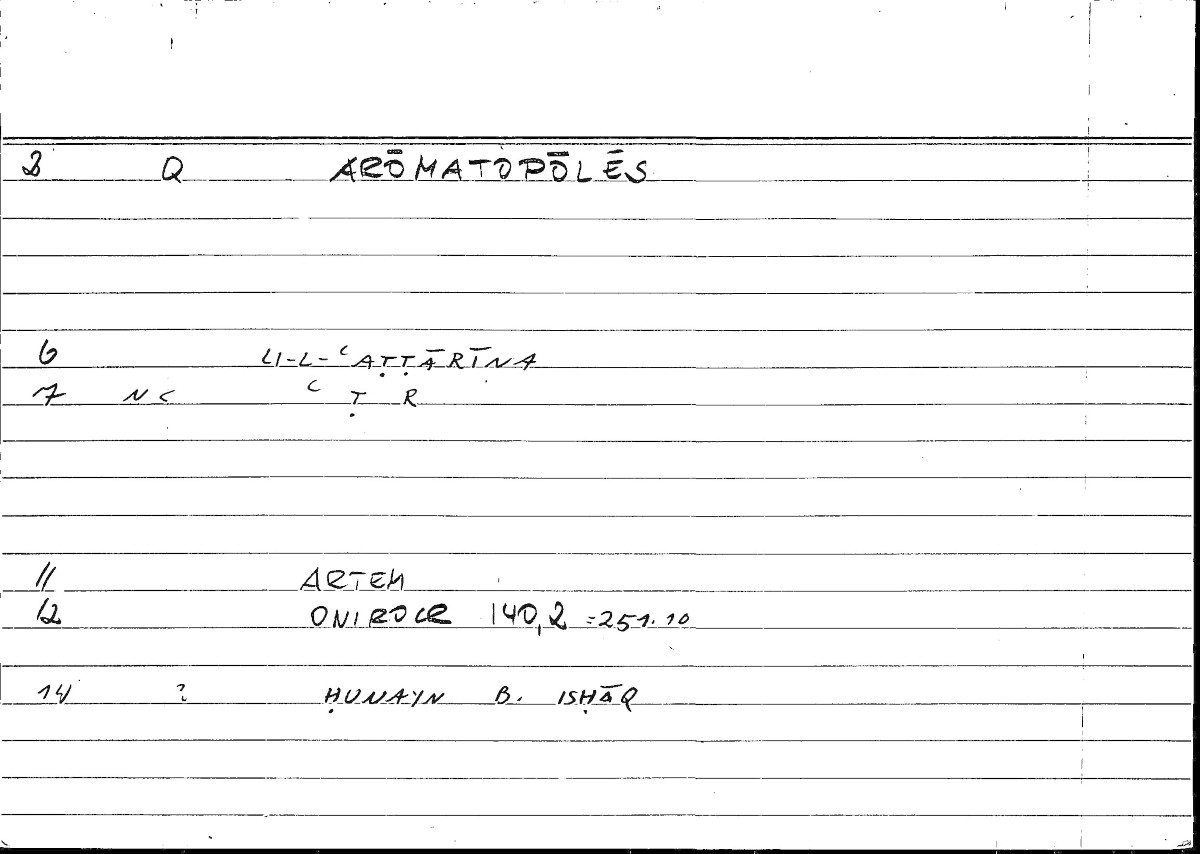 2 Q ARŌMATOPŌLĒS
6 LI-L-ʿAṬṬĀRĪNA
7 NC ʿ Ṭ R
11 ARTEM
12 ONIROCR 140,2 =251.10
14 ? ḤUNAYN B. ISḤĀQ